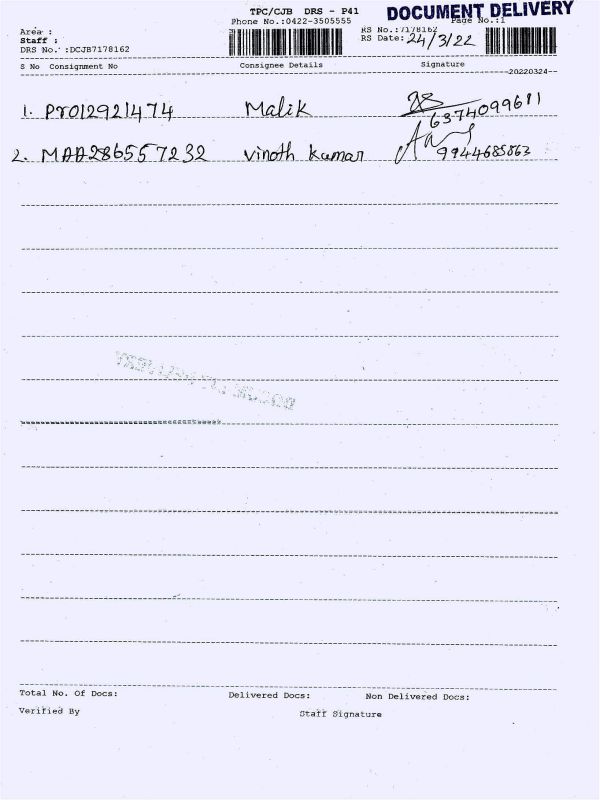 TPC/CJB DRS - P41
DOCUMENT DELIVERY
Phone No.:0422-3505555
Page No.:1
Area :
Staff :
DRS No. :DCJB7178162
RS No.:7178162
RS Date: 24/3/22
S No Consignment No Consignee Details Signature
20220324
1. PRO12921474 Malik 6374099611
2. MAA286557232 Vinoth kumar 9944685863
Total No. Of Docs: Delivered Docs: Non Delivered Docs:
Verified By Staff Signature